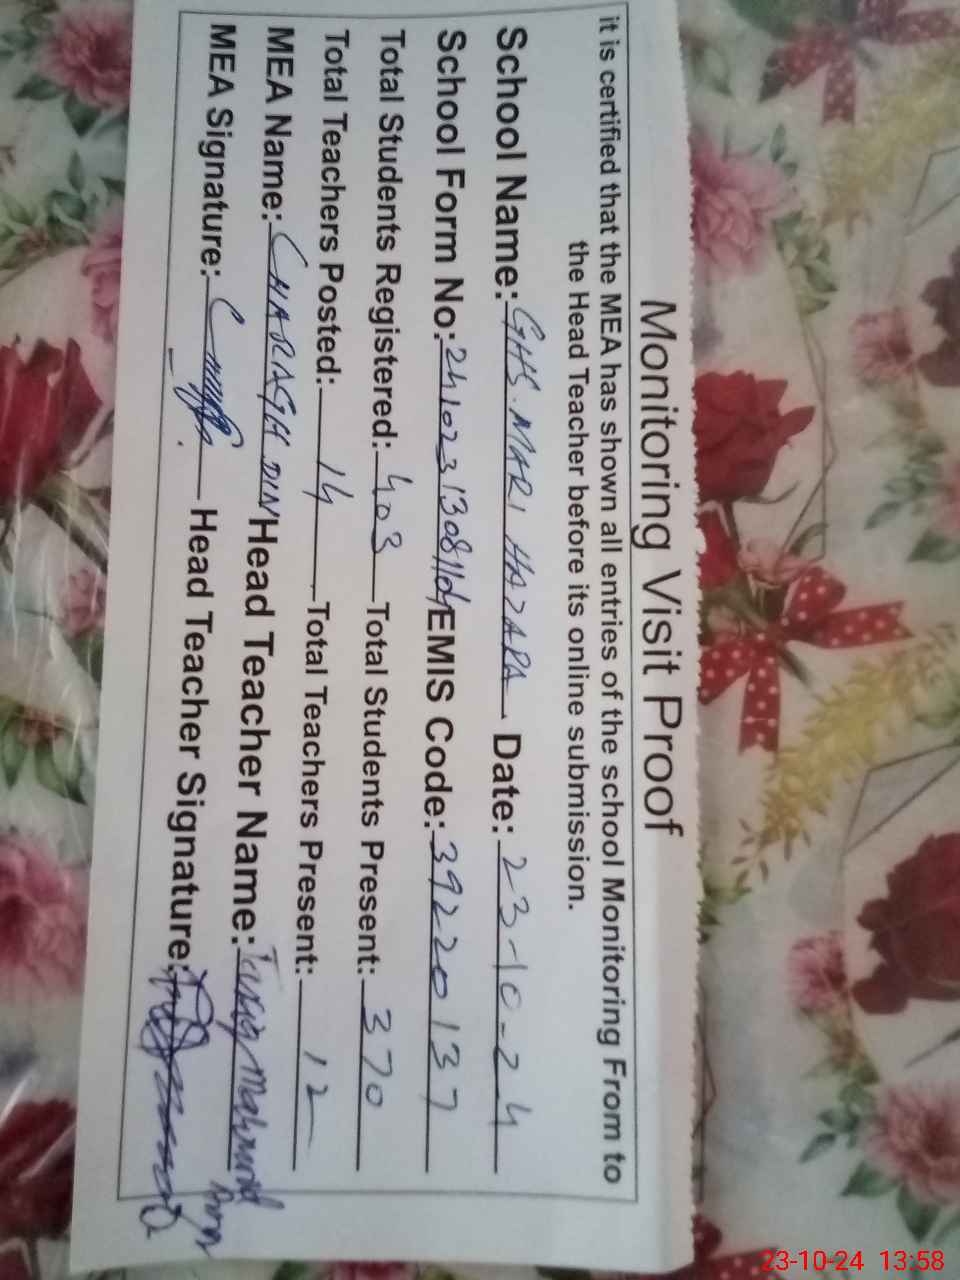 Monitoring Visit Proof
it is certified that the MEA has shown all entries of the school Monitoring From to
the Head Teacher before its online submission.
School Name: GHS. MARI HAZARA Date: 23-10-24
School Form No: 241023130811 EMIS Code: 39220137
Total Students Registered: 403 Total Students Present: 370
Total Teachers Posted: 14 Total Teachers Present: 12
MEA Name: CHARAGH DIN Head Teacher Name: Mahmood
MEA Signature: Head Teacher Signature:
23-10-24 13:58